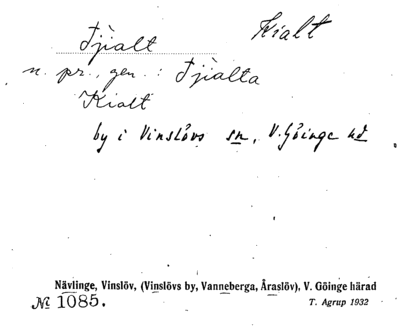 Tjialt Kialt
n. pr., gen.: Tjialta
Kialt
by i Vinslövs sn, V. Göinge hd.
Nävlinge, Vinslöv, (Vinslövs by, Vanneberga, Åraslöv), V. Göinge härad
№ 1085. T. Agrup 1932